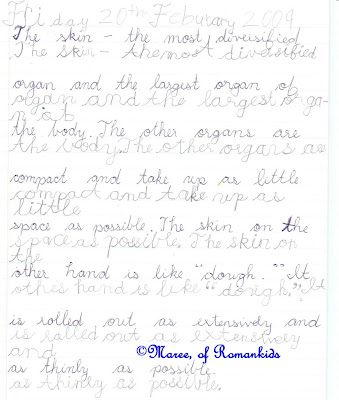 Friday 20th February 2009
The skin - the most diversified
The skin - the most diversified
organ and the largest organ of
organ and the largest orga-
n of
the body. The other organs are
the body. The other organs are
compact and take up as little
compact and take up as
little
space as possible. The skin on the
space as possible. The skin on
the
other hand is like "dough." It
other hand is like "dough." It
is rolled out as extensively and
is rolled out as extensively
and
as thinly as possible.
as thinly as possible.
©Maree, of Romankids